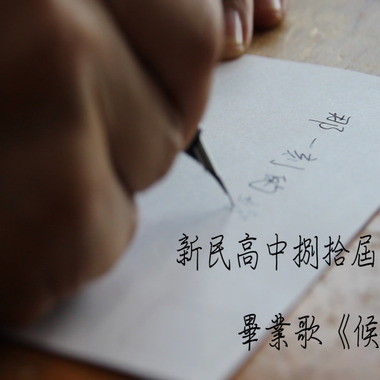 那一刻的
新民高中捌拾屆
畢業歌《候